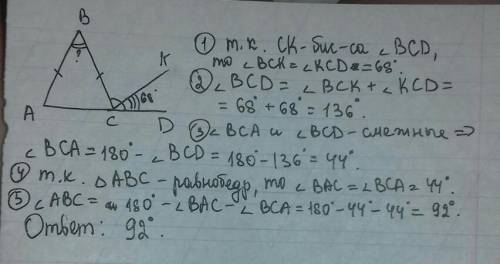 B
?
K
A
C
68°
D
① т.к. CK-бис-са ∠BCD,
то ∠BCK = ∠KCD = 68°.
② ∠BCD = ∠BCK + ∠KCD =
= 68° + 68° = 136°.
③ ∠BCA и ∠BCD - смежные =>
∠BCA = 180° - ∠BCD = 180° - 136° = 44°.
④ т.к. △ABC - равнобедр, то ∠BAC = ∠BCA = 44°.
⑤ ∠ABC = 180° - ∠BAC - ∠BCA = 180° - 44° - 44° = 92°.
Ответ: 92°.